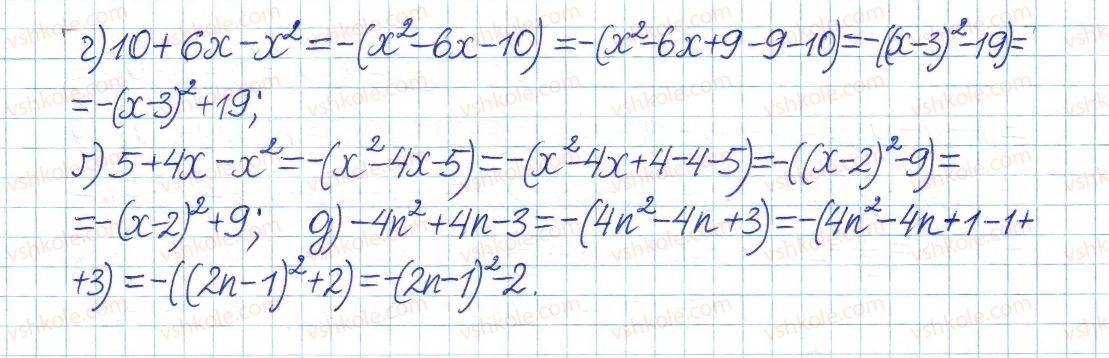 г) 10 + 6x - x² = -(x² - 6x - 10) = -(x² - 6x + 9 - 9 - 10) = -((x - 3)² - 19) =
= -(x - 3)² + 19;
ґ) 5 + 4x - x² = -(x² - 4x - 5) = -(x² - 4x + 4 - 4 - 5) = -((x - 2)² - 9) =
= -(x - 2)² + 9; д) -4n² + 4n - 3 = -(4n² - 4n + 3) = -(4n² - 4n + 1 - 1 +
+ 3) = -((2n - 1)² + 2) = -(2n - 1)² - 2.
vshkole.com